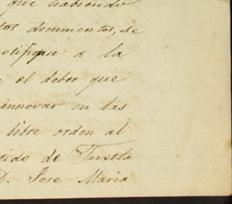 que habiendo
los documentos, se
notifique á la
e el deber que
innovar en las
libre orden al
ido de Tuxtla
D. Jose Maria